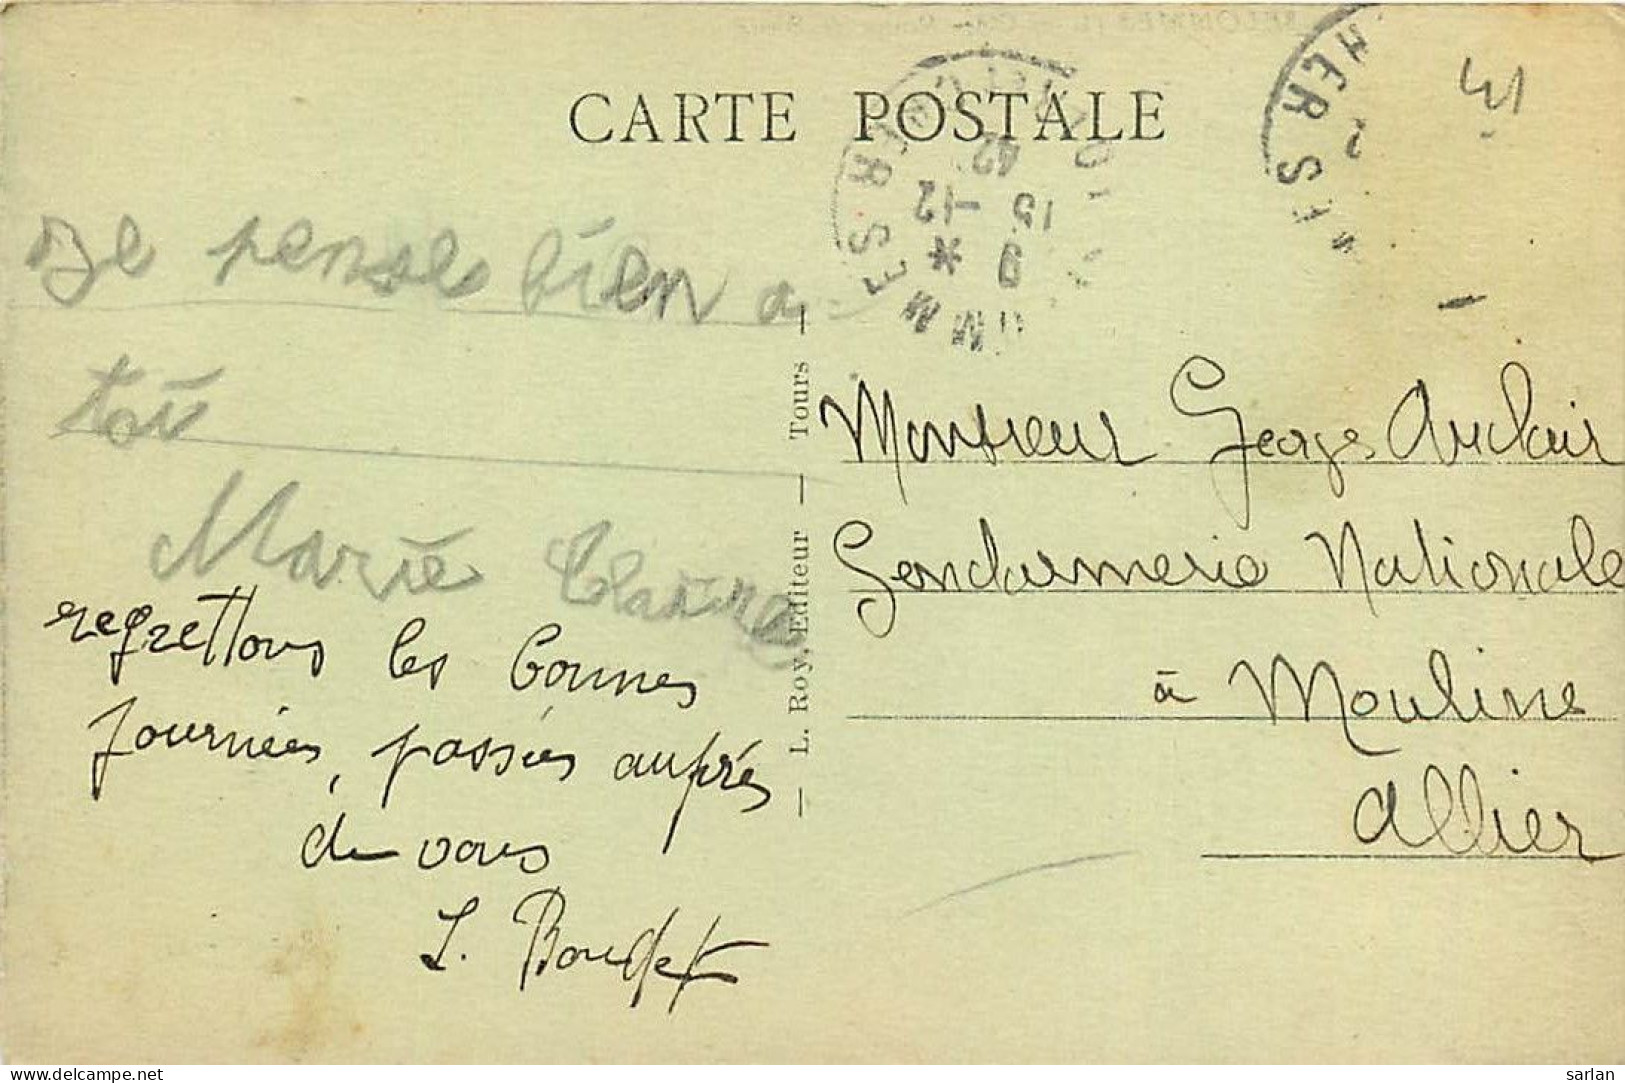 CARTE POSTALE
je pense bien a
toi
Marie Claire
regrettons les bonnes
journées, passées auprès
de vous
J. Boudet
— L. Roy, Editeur — Tours —
Monsieur Georges Auclair
Gendarmerie Nationale
à Mouline
Allier
MMES
CHER
9 *
15 -12
42
HER S IN
2
delcampe.net
sarlan